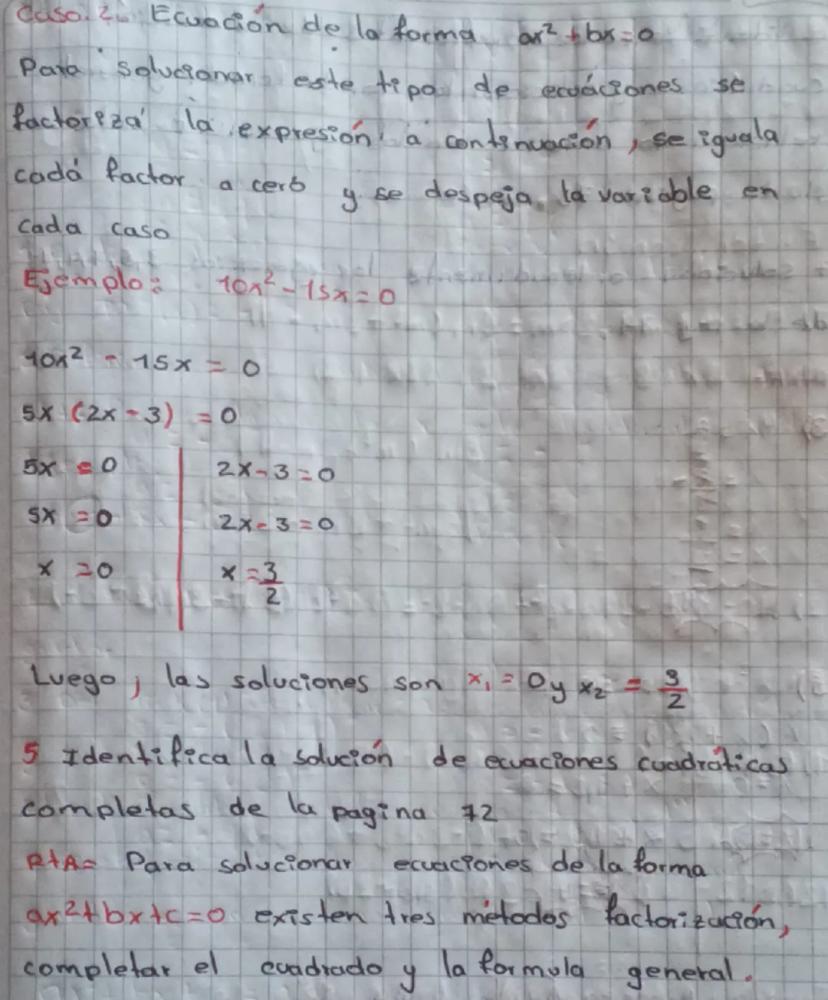 Caso. 2. Ecuación de la forma ax² + bx = 0
Para solucionar este tipo de ecuáciones se
factoriza la expresión a continuación, se iguala
cada factor a cero y se despeja la variable en
cada caso
Ejemplo: 10x² - 15x = 0
10x² - 15x = 0
5x (2x - 3) = 0
5x = 0 2x - 3 = 0
5x = 0 2x - 3 = 0
x = 0 x = 3/2
Luego, las soluciones son x₁ = 0 y x₂ = 3/2
5 Identifica la solución de ecuaciones cuadráticas
completas de la pagina 72
RtA= Para solucionar ecuaciones de la forma
ax² + bx + c = 0 existen tres métodos factorización,
completar el cuadrado y la formula general.